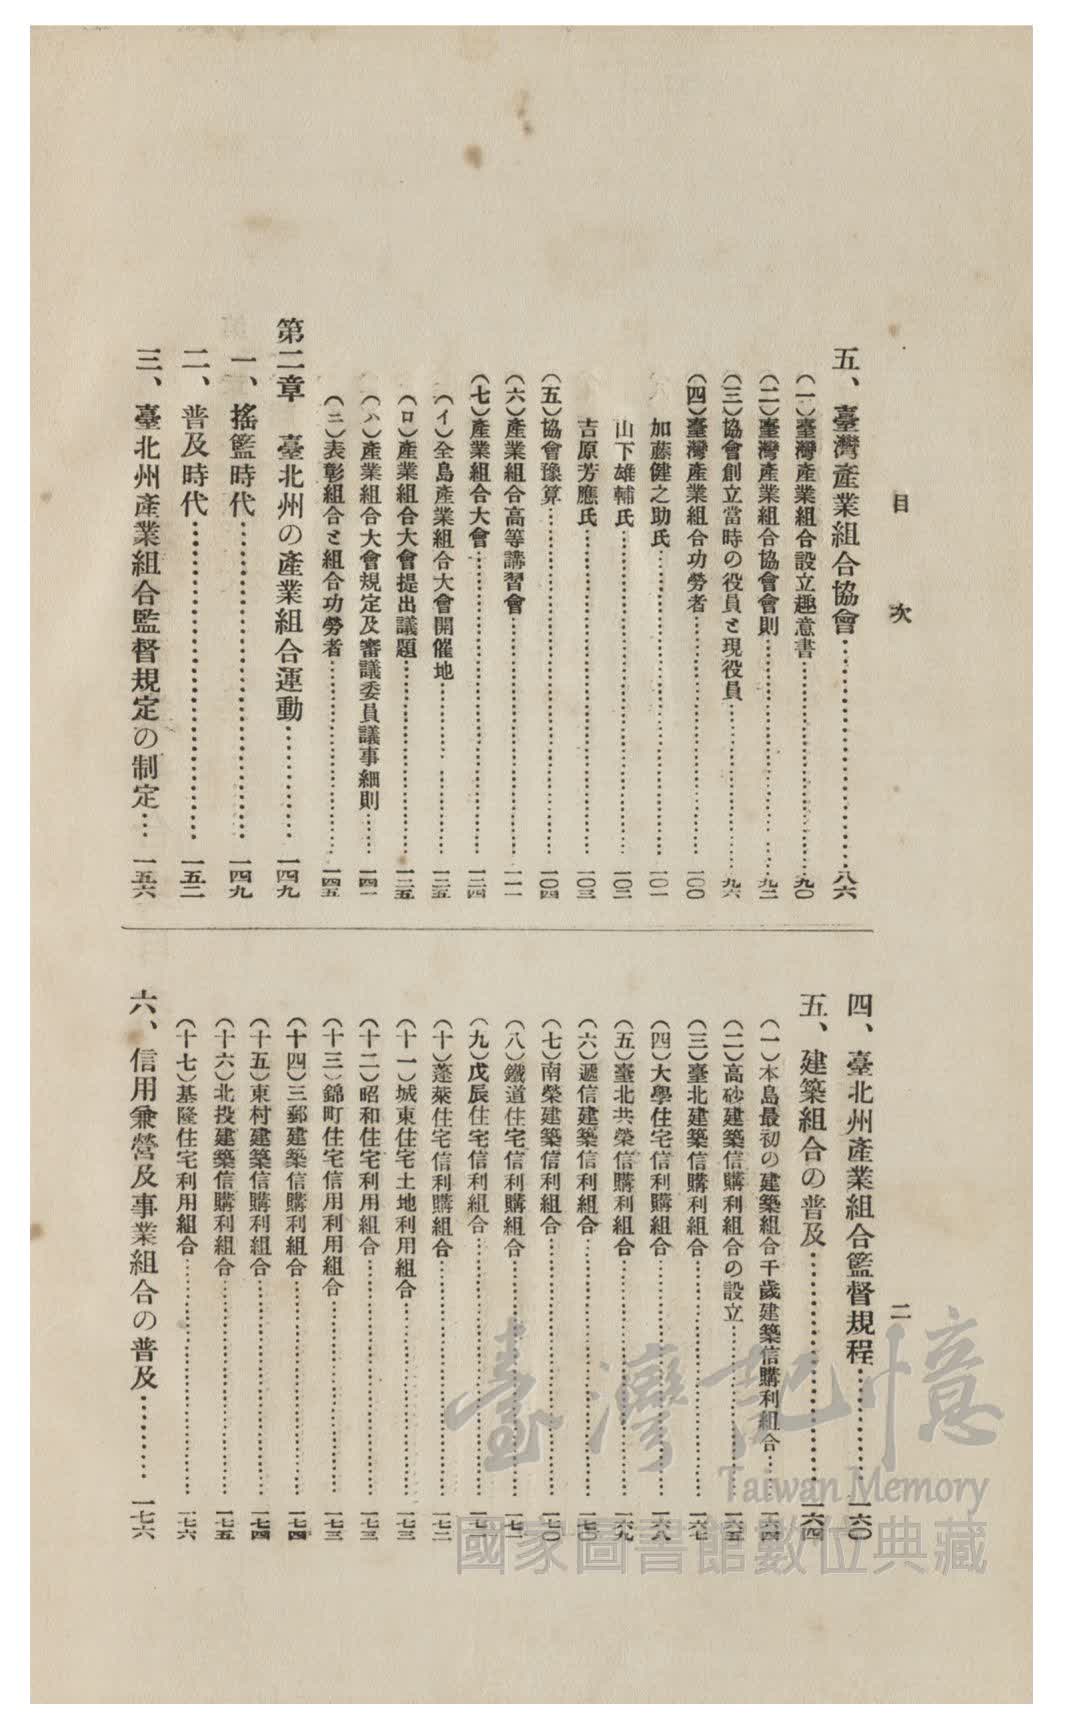 目次
二
五、臺灣產業組合協會……………………八六
(一)臺灣產業組合設立趣意書……………………九〇
(二)臺灣產業組合協會會則……………………九二
(三)協會創立當時の役員と現役員……………………九六
(四)臺灣產業組合功勞者……………………一〇〇
加藤健之助氏……………………一〇一
山下雄輔氏……………………一〇二
吉原芳應氏……………………一〇三
(五)協會豫算……………………一〇四
(六)產業組合高等講習會……………………一一一
(七)產業組合大會……………………一三四
(イ)全島產業組合大會開催地……………………一三五
(ロ)產業組合大會提出議題……………………一三五
(ハ)產業組合大會規定及審議委員議事細則……一四一
(ニ)表彰組合と組合功勞者……………………一四五
第二章 臺北州の產業組合運動…………一四九
一、搖籃時代……………………一四九
二、普及時代……………………一五二
三、臺北州產業組合監督規定の制定…一五六
四、臺北州產業組合監督規程…………一六〇
五、建築組合の普及……………………一六四
(一)本島最初の建築組合千歲建築信購利組合……一六四
(二)高砂建築信購利組合の設立……………………一六五
(三)臺北建築信購利組合……………………一六七
(四)大學住宅信利購組合……………………一六八
(五)臺北共榮信購利組合……………………一六九
(六)遞信建築信利組合……………………一七〇
(七)南榮建築信利組合……………………一七〇
(八)鐵道住宅信利購組合……………………一七一
(九)戊辰住宅信利組合……………………一七一
(十)蓬萊住宅信利購組合……………………一七二
(十一)城東住宅土地利用組合……………………一七三
(十二)昭和住宅利用組合……………………一七三
(十三)錦町住宅信用利用組合……………………一七三
(十四)三郵建築信購利組合……………………一七四
(十五)東村建築信購利組合……………………一七四
(十六)北投建築信購利組合……………………一七五
(十七)基隆住宅利用組合……………………一七六
六、信用兼營及事業組合の普及………一七六
臺灣記憶
Taiwan Memory
國家圖書館數位典藏